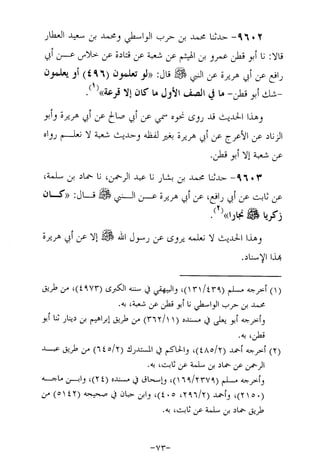 ٩٦٠٢- حدثنا محمد بن حرب الواسطي ومحمد بن سعيد العطار
قالا: نا أبو قطن عمرو بن الهيثم عن شعبة عن قتادة عن خلاس عن أبي
رافع عن أبي هريرة عن النبي ﷺ قال: «لو تعلمون (٤٩٦) أو يعلمون
-شك أبو قطن- ما في الصف الأول ما كان إلا قرعة»(١).
وهذا الحديث قد روى نحوه سمي عن أبي صالح عن أبي هريرة وأبو
الزناد عن الأعرج عن أبي هريرة بغير لفظه وحديث شعبة لا نعلم رواه
عن شعبة إلا أبو قطن.
٩٦٠٣- حدثنا محمد بن بشار نا عبد الرحمن، نا حماد بن سلمة،
عن ثابت عن أبي رافع، عن أبي هريرة عن النبي ﷺ قال: «كان
زكريا ﷺ نجارا»(٢).
وهذا الحديث لا نعلمه يروى عن رسول الله ﷺ إلا عن أبي هريرة
بهذا الإسناد.
(١) أخرجه مسلم (١٣١/٤٣٩)، والبيهقي في سننه الكبرى (٤٩٧٣)، من طريق
محمد بن حرب الواسطي نا أبو قطن عن شعبة، به.
وأخرجه أبو يعلى في مسنده (٣٦٢/١١) من طريق إبراهيم بن دينار ثنا أبو
قطن، به.
(٢) أخرجه أحمد (٤٨٥/٢)، والحاكم في المستدرك (٦٤٥/٢) من طريق عبد
الرحمن عن حماد بن سلمة عن ثابت، به.
وأخرجه مسلم (١٦٩/٢٣٧٩)، وإسحاق في مسنده (٢٤)، وابن ماجه
(٢١٥٠)، وأحمد (٢٩٦/٢، ٤٠٥)، وابن حبان في صحيحه (٥١٤٢) من
طريق حماد بن سلمة عن ثابت، به.
-٧٣-